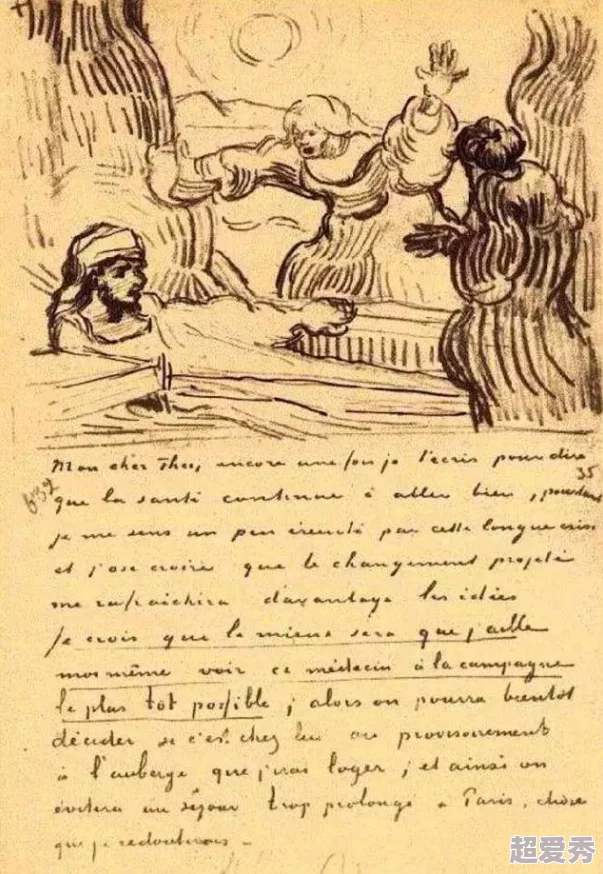 Mon cher Theo, encore une fois je t'ecris pour dire
35
632
que la santé continue à aller bien, pourtant
je me sens un peu éreinté par cette longue crise
et j'ose croire que le changement projeté
me rafraichira davantage les idées
Je crois que le mieux sera que j'aille
moi même voir ce médecin à la campagne
le plus tôt possible ; alors on pourra bientôt
décider si c'est chez lui ou provisoirement
à l'auberge que j'irai loger ; et ainsi on
évitera un séjour trop prolongé à Paris, chose
que je redouterais. -
超爱秀